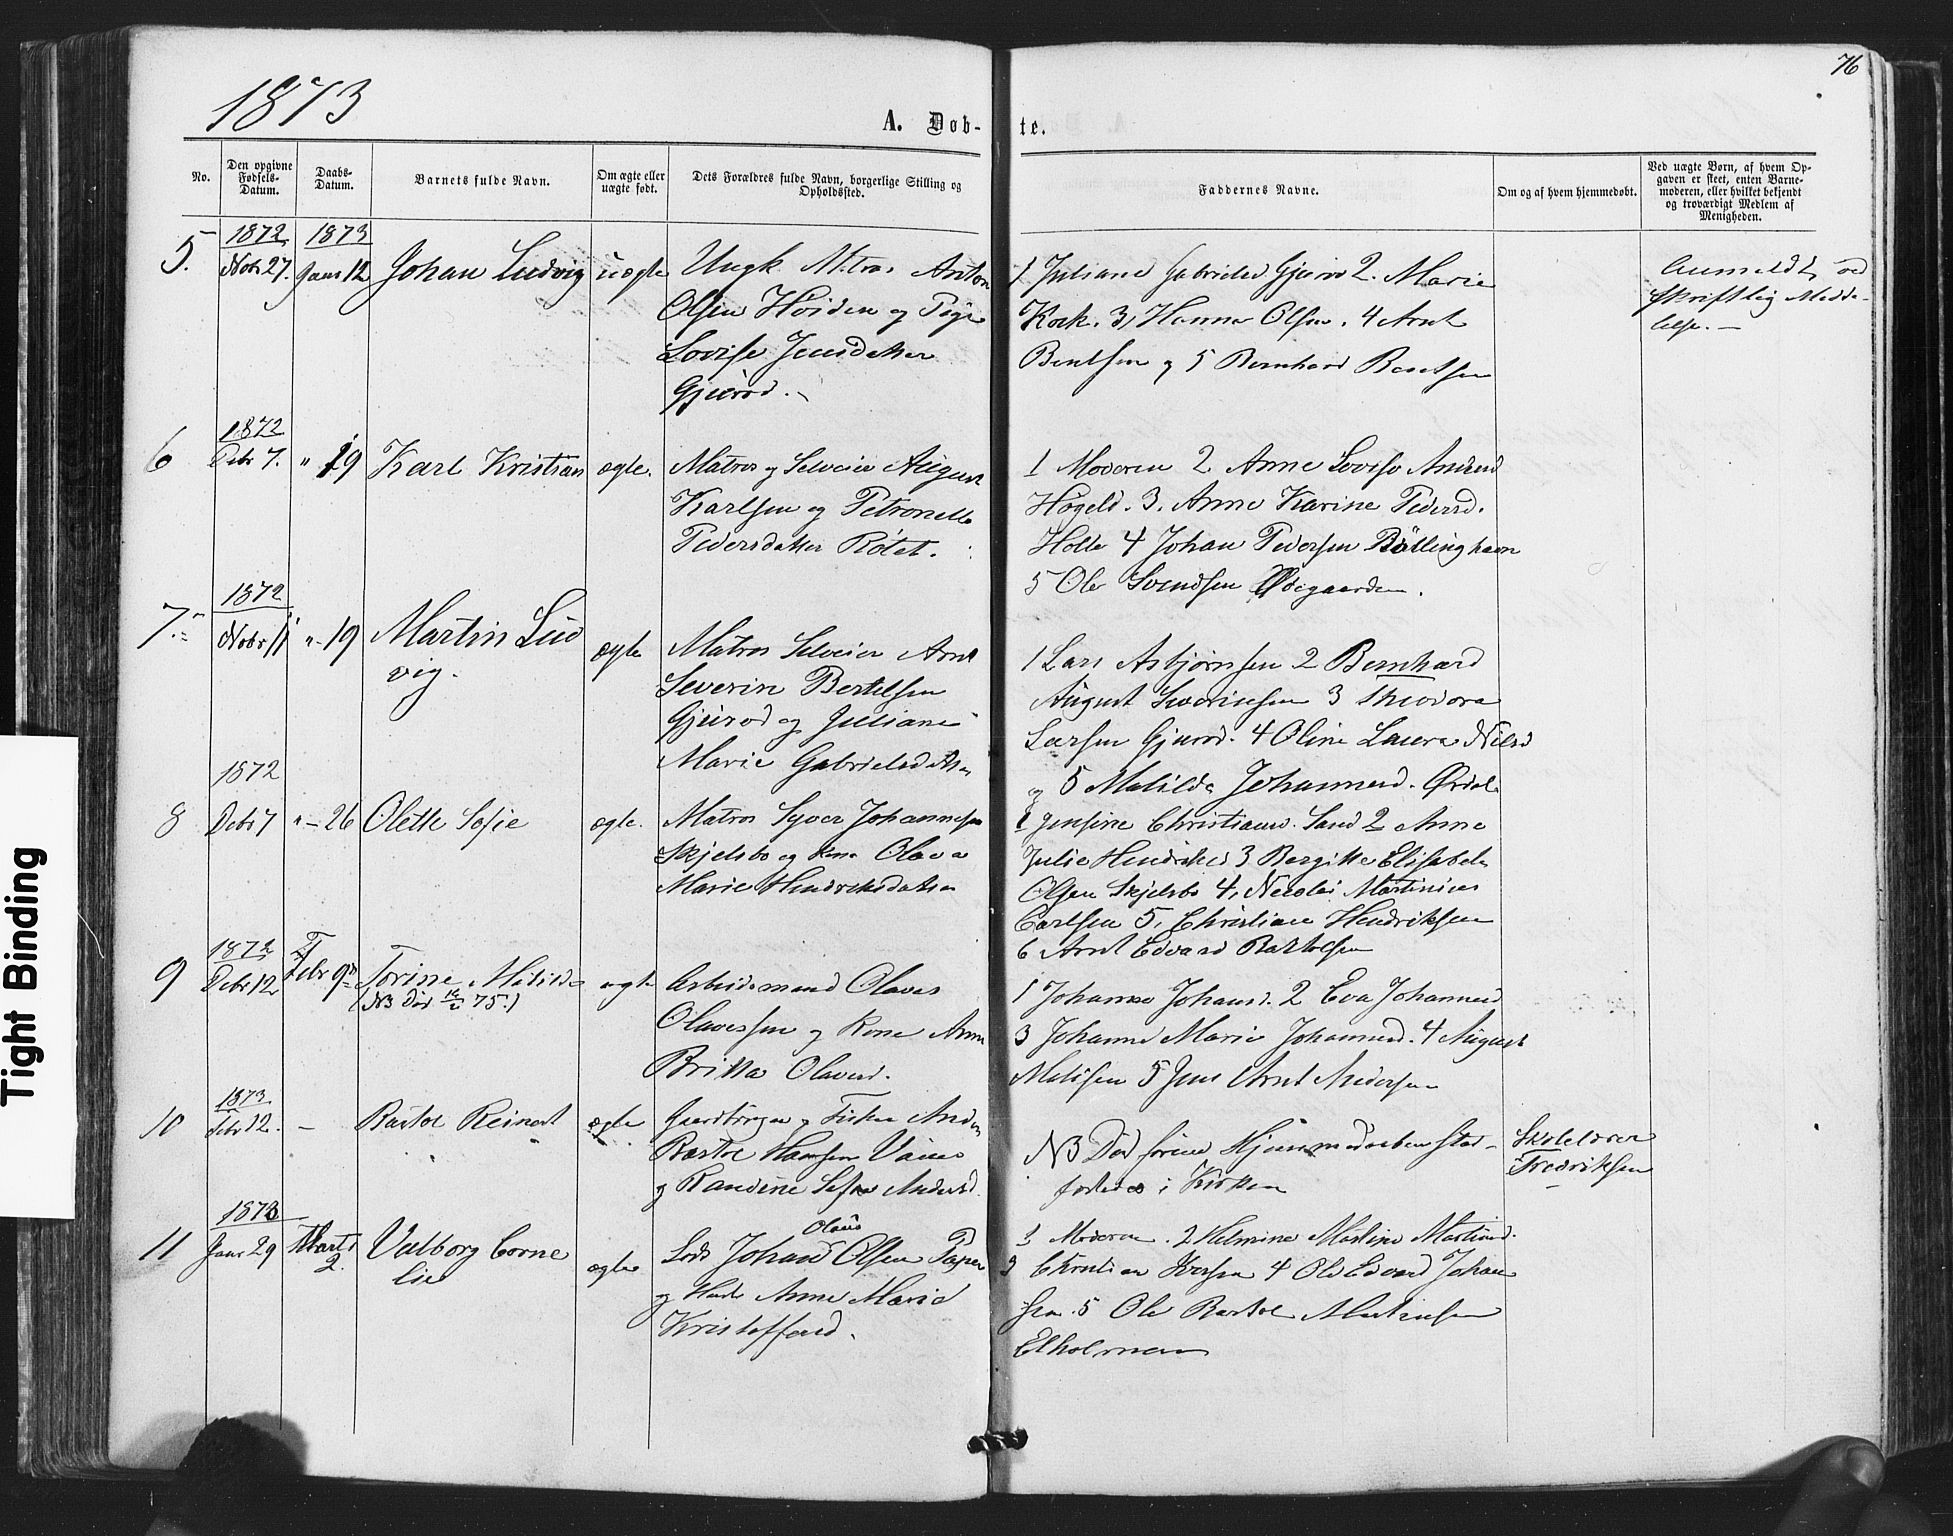 76
1873
A. Døb-te.
No.
Den opgivne Fødsels-Datum.
Daabs-Datum.
Barnets fulde Navn.
Om ægte eller uægte født.
Dets Forældres fulde Navn, borgerlige Stilling og Opholdssted.
Faddernes Navne.
Om og af hvem hjemmedøbt.
Ved uægte Børn, af hvem Opgaven er skeet, enten Barnemoderen, eller hvilket bekjendt og troværdigt Medlem af Menigheden.
5.
1872
Nobr 27.
1873
Janr 12
Johan Ludvig
uægte
Ungk. Matros Anton
Olsen Høiden og Pige
Lovise Jensdatter
Gjerød.
1 Juliane Gabrielsd Gjerød 2. Marie
Kock. 3, Hanna Olsen. 4 Arnt
Bentsen og 5 Bernhard Bentsen
Anmeldt ved
skriftlig Medde-
lelse. —
6
1872
Debr 7.
" 19
Karl Kristian
ægte.
Matros og Selveier August
Karlsen og Petronelle
Pedersdatter Rødt.
1 Moderen 2 Anne Lovise Andersd
3. Anne Karine Pedersd.
Holte 4 Johan Pedersen Bøllinghavn
5 Ole Svendsen Ødegaarden.
7.
1872
Nobr 11
" 19
Martin Lud
vig.
ægte
Matros Selveier Arnt
Severin Bertelsen
Gjerød og Juliane
Marie Gabrielsdatter
1 Lars Asbjørnsen 2 Bernhard
August Severinsen 3 Theodora
Larsen Gjerød. 4 Oline Laura Nilsd
og 5 Matilde Johannesd.
8
1872
Debr 7
" — 26
Olette Sofie
ægte.
Matros Syver Johannesen
Skjelsbo og Kone Olava
Marie Hendriksdatter
1 Jensine Christiansd. Sand 2 Anne
Julie Hendriksd 3 Bergitte Elisabet
Olsen Skjelsbo 4, Nicolai Martinius
Carlsen 5, Christian Hendriksen
6 Arnt Edvard Bartolsen
9
1872
Debr 12
Febr 9
Torine Matilde
(NB Død 12/2 75.)
ægte
Arbeidsmand Olaves
Olavessen og Kone Anne
Britta Olavesd.
1 Johanne Johansd. 2 Eva Johannesd
3 Johanne Marie Johannesd. 4 August
Matisen 5 Jens Arnt Andersen
10
1873
Febr 12.
—
Bastol Reinert
ægte
Gaardbruger og Fisker Anders
Bastol Hansen Vauer
og Randine Sofie Andersd
NB Død førend Hjemmedaaben stad-
fæstedes i Kirken
Skolelærer
Fredriksen
11
1873
Janr 29
Marts
2.
Valborg Corne
lie
ægte
Lods Johan Olaus Olsen Papper
og Hustr Anne Marie
Kristoffersd.
1 Moderen. 2 Helmine Martine Martinsd.
3 Christian Iversen 4 Ole Edvard Johan
sen. 5 Ole Bastol Martinsen
Elholmen
Tight Binding